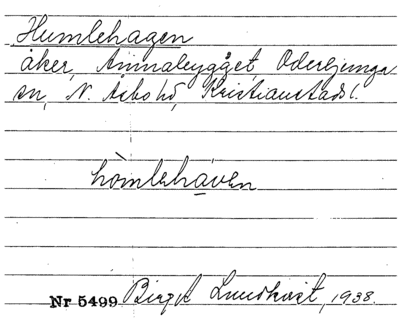 Humlehagen
åker, Ammakygget, Oderljunga
sn, N. Åsbo hd, Kristianstads l.
hòmlehaven
Nr 5499 Birgit Lundkvist, 1938.